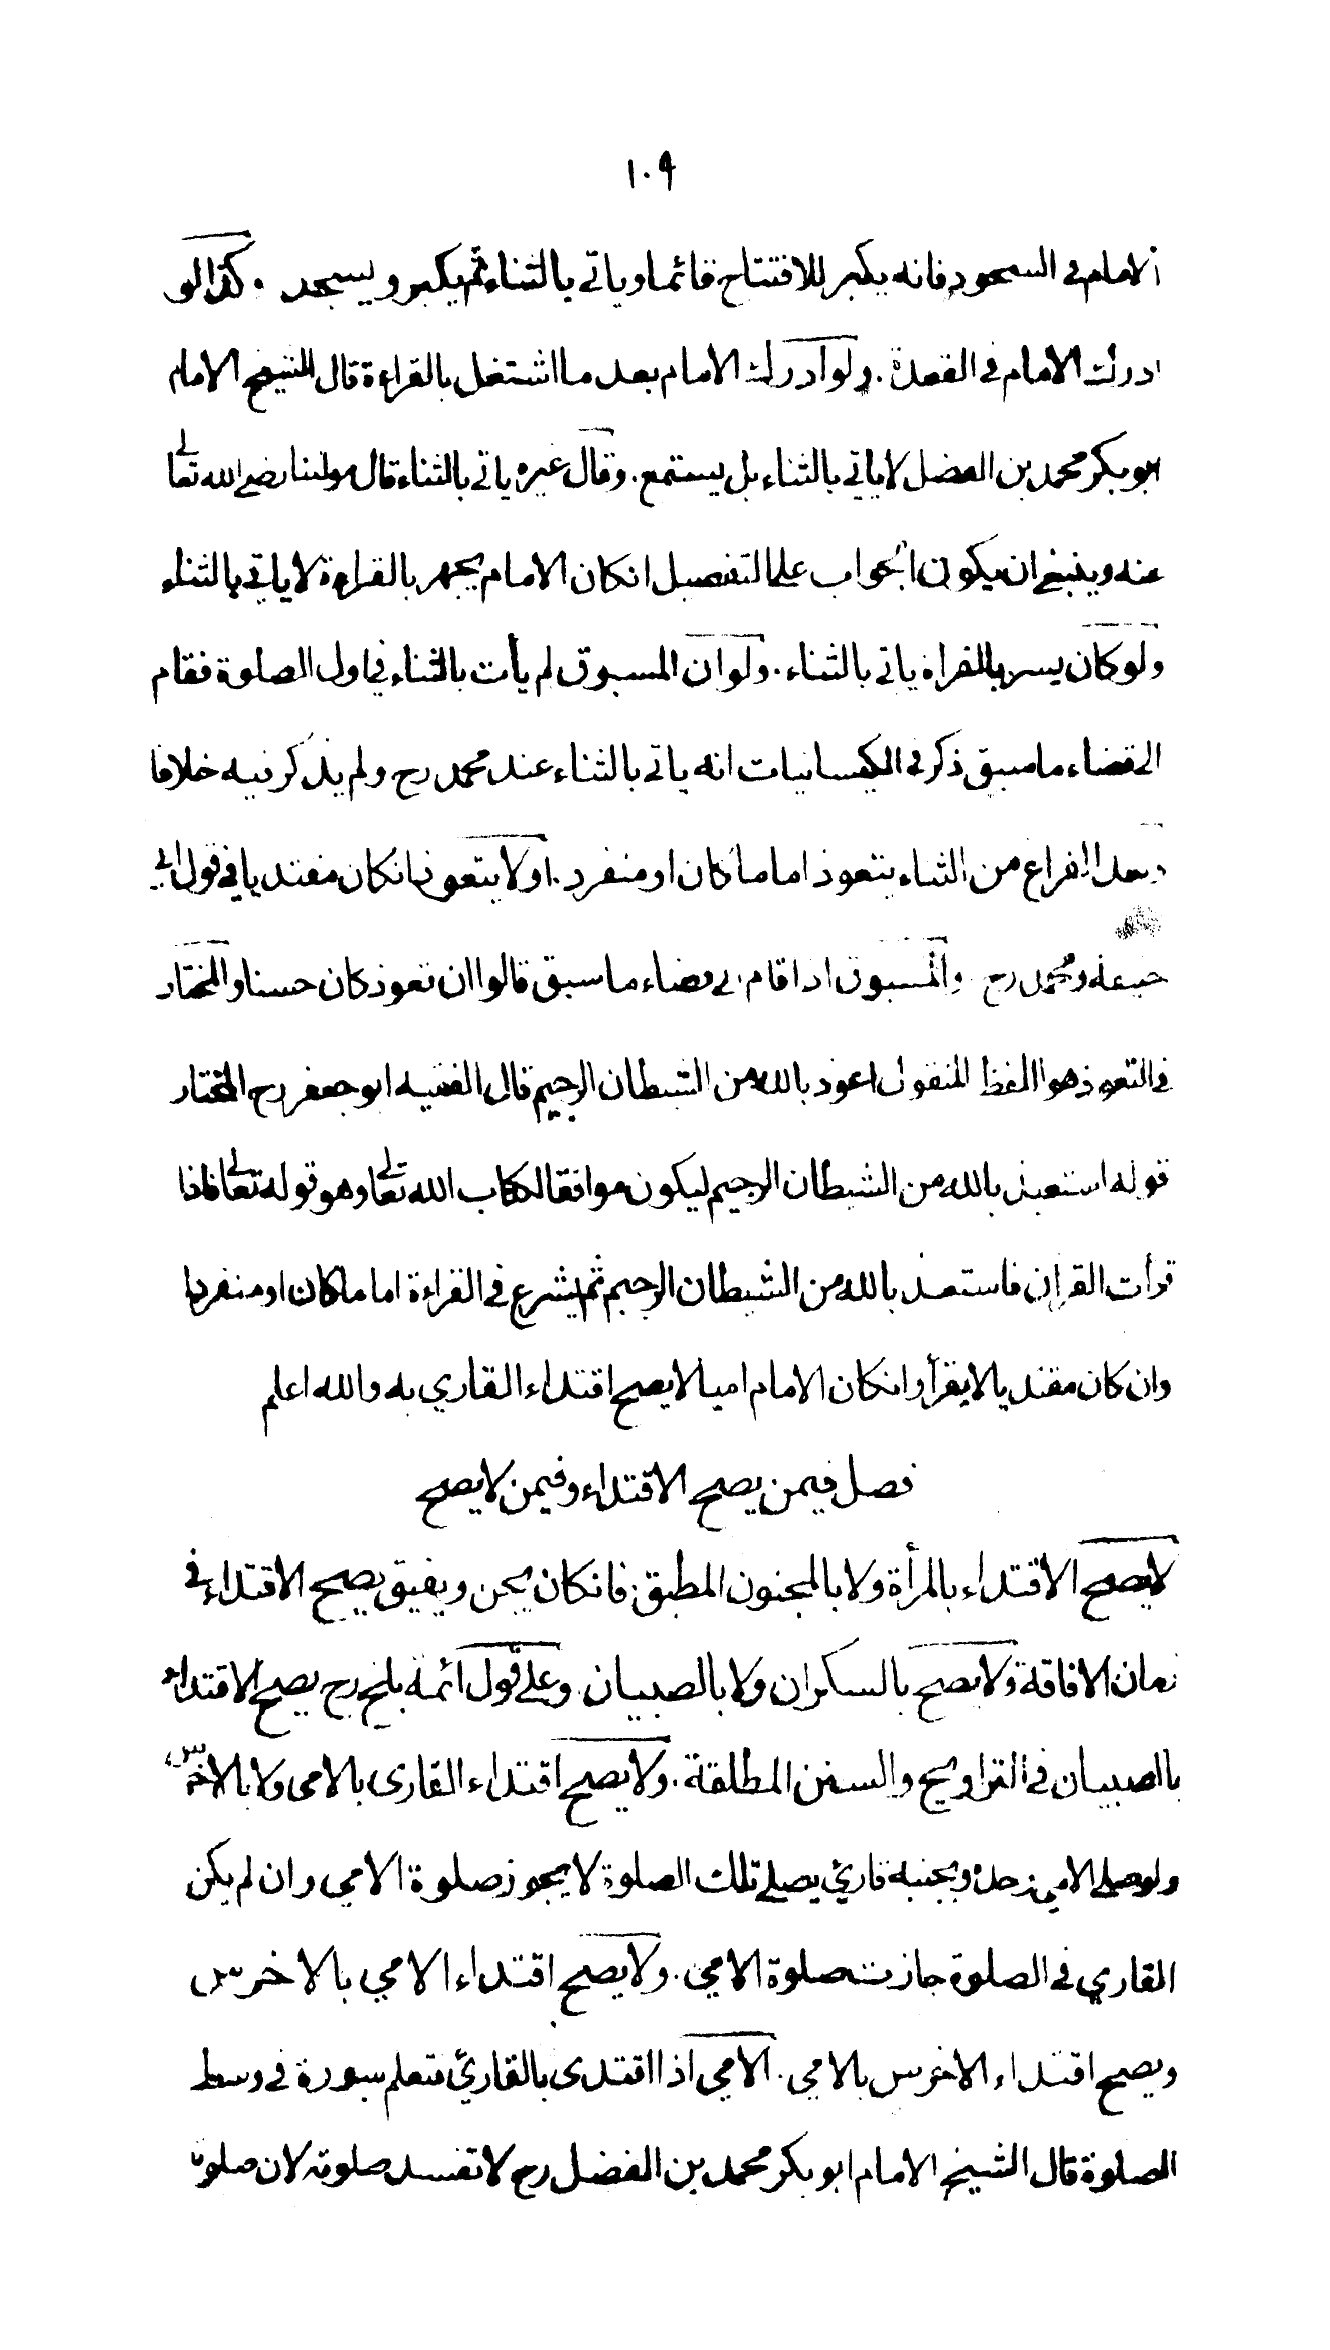 ١٠٩
الامام في السجود فانه يكبر للافتتاح قائما وياتي بالثناء ثم يكبر ويسجد . كذا لو
ادرك الامام في القعدة . ولو ادرك الامام بعد ما اشتغل بالقراءة قال الشيخ الامام
ابو بكر محمد بن الفضل لاياتي بالثناء بل يستمع . وقال غيره ياتي بالثناء قال مولينا رضي الله تعالى
عنه وينبغي ان يكون الجواب على التفصيل انكان الامام يجهر بالقراءة لا ياتي بالثناء
ولو كان يسر بالقراءة ياتي بالثناء . ولو ان المسبوق لم يأت بالثناء في اول الصلوة فقام
الى قضاء ما سبق ذكر في الكيسانيات انه ياتي بالثناء عند محمد رح ولم يذكر فيه خلافا
وبعد الفراغ من الثناء يتعوذ اماما كان او منفرد . او لا يتعوذ انكان مقتديا في قول ابي
حنيفة ومحمد رح والمسبوق اذا قام الى قضاء ما سبق قالوا ان تعوذ كان حسنا والمختار
في التعوذ هو اللفظ المنقول اعوذ بالله من الشيطان الرجيم قال الفقيه ابو جعفر رح المختار
قوله استعيذ بالله من الشيطان الرجيم ليكون موافقا لكتاب الله تعالى وهو قوله تعالى فاذا
قرأت القران فاستعذ بالله من الشيطان الرجيم ثم يشرع في القراءة اماما كان او منفردا
وان كان مقتديا لا يقرأ وانكان الامام اميا لا يصح اقتداء القاري به والله اعلم
فصل فيمن يصح الاقتداء وفيمن لا يصح
لا يصح الاقتداء بالمرأة ولا بالمجنون المطبق . فانكان يجن ويفيق يصح الاقتداء في
زمان الافاقة ولا يصح بالسكران ولا بالصبيان . وعلى قول ائمة بلخ رح يصح الاقتداء
بالصبيان في التراويح والسنن المطلقة . ولا يصح اقتداء القارى بالامى ولا بالاخرس
ولو صلى الامي وحده وبجنبه قارئ يصلي تلك الصلوة لا يجوز صلوة الامي وان لم يكن
القاري في الصلوة جازت صلوة الامي . ولا يصح اقتداء الامي بالاخرس
ويصح اقتداء الاخرس بالامي . الامي اذا اقتدى بالقارئ فتعلم سورة في وسط
الصلوة قال الشيخ الامام ابو بكر محمد بن الفضل رح لا تفسد صلوته لان صلوته